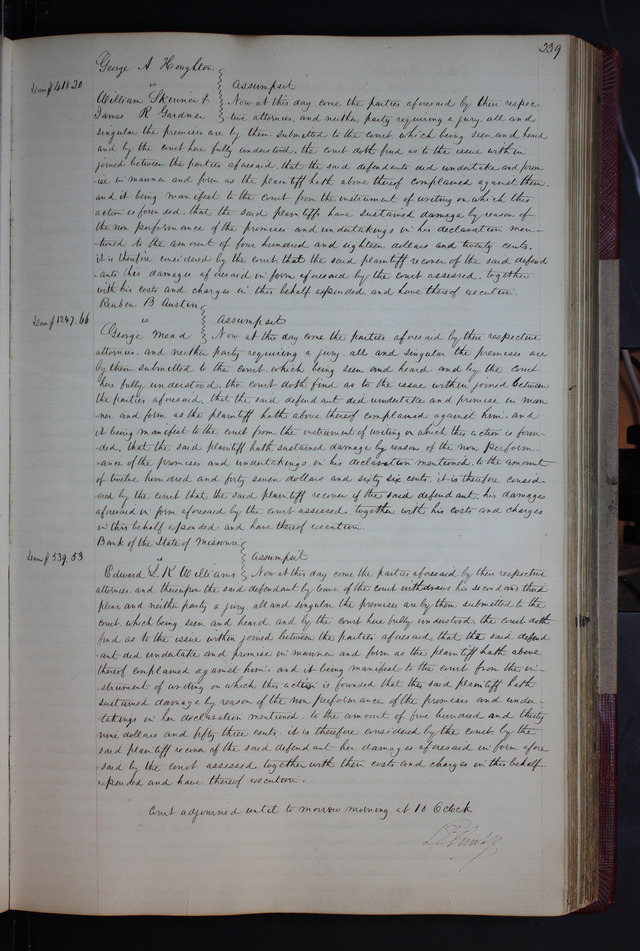 239
George A Houghton
vs Assumpsit
Dam $418.20
William Skinner & Now at this day come the parties aforesaid by their respec-
James R Gardner tive attornies, and neither party requiring a jury, all and
singular the premises are by them submitted to the court which being seen and heard
and by the court here fully understood, the court doth find as to the issue within
joined between the parties aforesaid, that the said defendants did undertake and prom-
-ise in manner and form as the plaintiff hath above thereof complained against them.
and it being manifest to the court from the instrument of writing on which this
action is founded, that the said plaintiffs have sustained damage by reason of
the non performance of the promises and undertakings in his declaration men-
-tioned to the amount of four hundred and eighteen dollars and twenty cents.
it is therefore considered by the court that the said plaintiff recover of the said defend
-ants his damages aforesaid in form aforesaid by the court assessed, together
with his costs and charges in this behalf expended and have thereof execution.
Reuben B Austin
Dam $1247.66 vs Assumpsit
George Mead Now at this day come the parties aforesaid by their respective
attornies. and neither party requiring a jury. all and singular the premises are
by them submitted to the court. which being seen and heard and by the court
here fully understood, the court doth find as to the issue within joined between
the parties aforesaid, that the said defendant did undertake and promise in man-
ner and form as the plaintiff hath above thereof complained against him. and
it being manifest to the court from the instrument of writing on which this action is foun-
ded, that the said plaintiff hath sustained damage by reason of the non perform-
-ance of the promises and undertakings in his declaration mentioned, to the amount
of twelve hundred and forty seven dollars and sixty six cents, it is therefore consid-
-ered by the court that the said plaintiff recover of the said defendant, his damages
aforesaid in form aforesaid by the court assessed together with his costs and charges
in this behalf expended and have thereof execution.
Bank of the State of Missouri
Dam $539.53 vs Assumpsit
Edward L. K Williams Now at this day come the parties aforesaid by their respective
attornies. and thereupon the said defendant by leave of the court withdraws his second and third
pleas. and neither party a jury. all and singular the premises are by them submitted to the
court. which being seen and heard. and by the court here fully understood. the court doth
find as to the issue within joined between the parties aforesaid, that the said defend
-ant did undertake and promise in manner and form as the plaintiff hath above
thereof complained against him. and it being manifest to the court from the in-
-strument of writing on which this action is founded that the said plaintiff hath
sustained damage by reason of the non performance of the promises and under-
-takings in her declaration mentioned. to the amount of five hundred and thirty
nine dollars and fifty three cents. it is therefore considered by the court by the
said plaintiff recover of the said defendant her damages aforesaid in form afore
-said by the court assessed together with their costs and charges in this behalf
expended and have thereof execution.
Court adjourned until to morrow morning at 10 O'clock